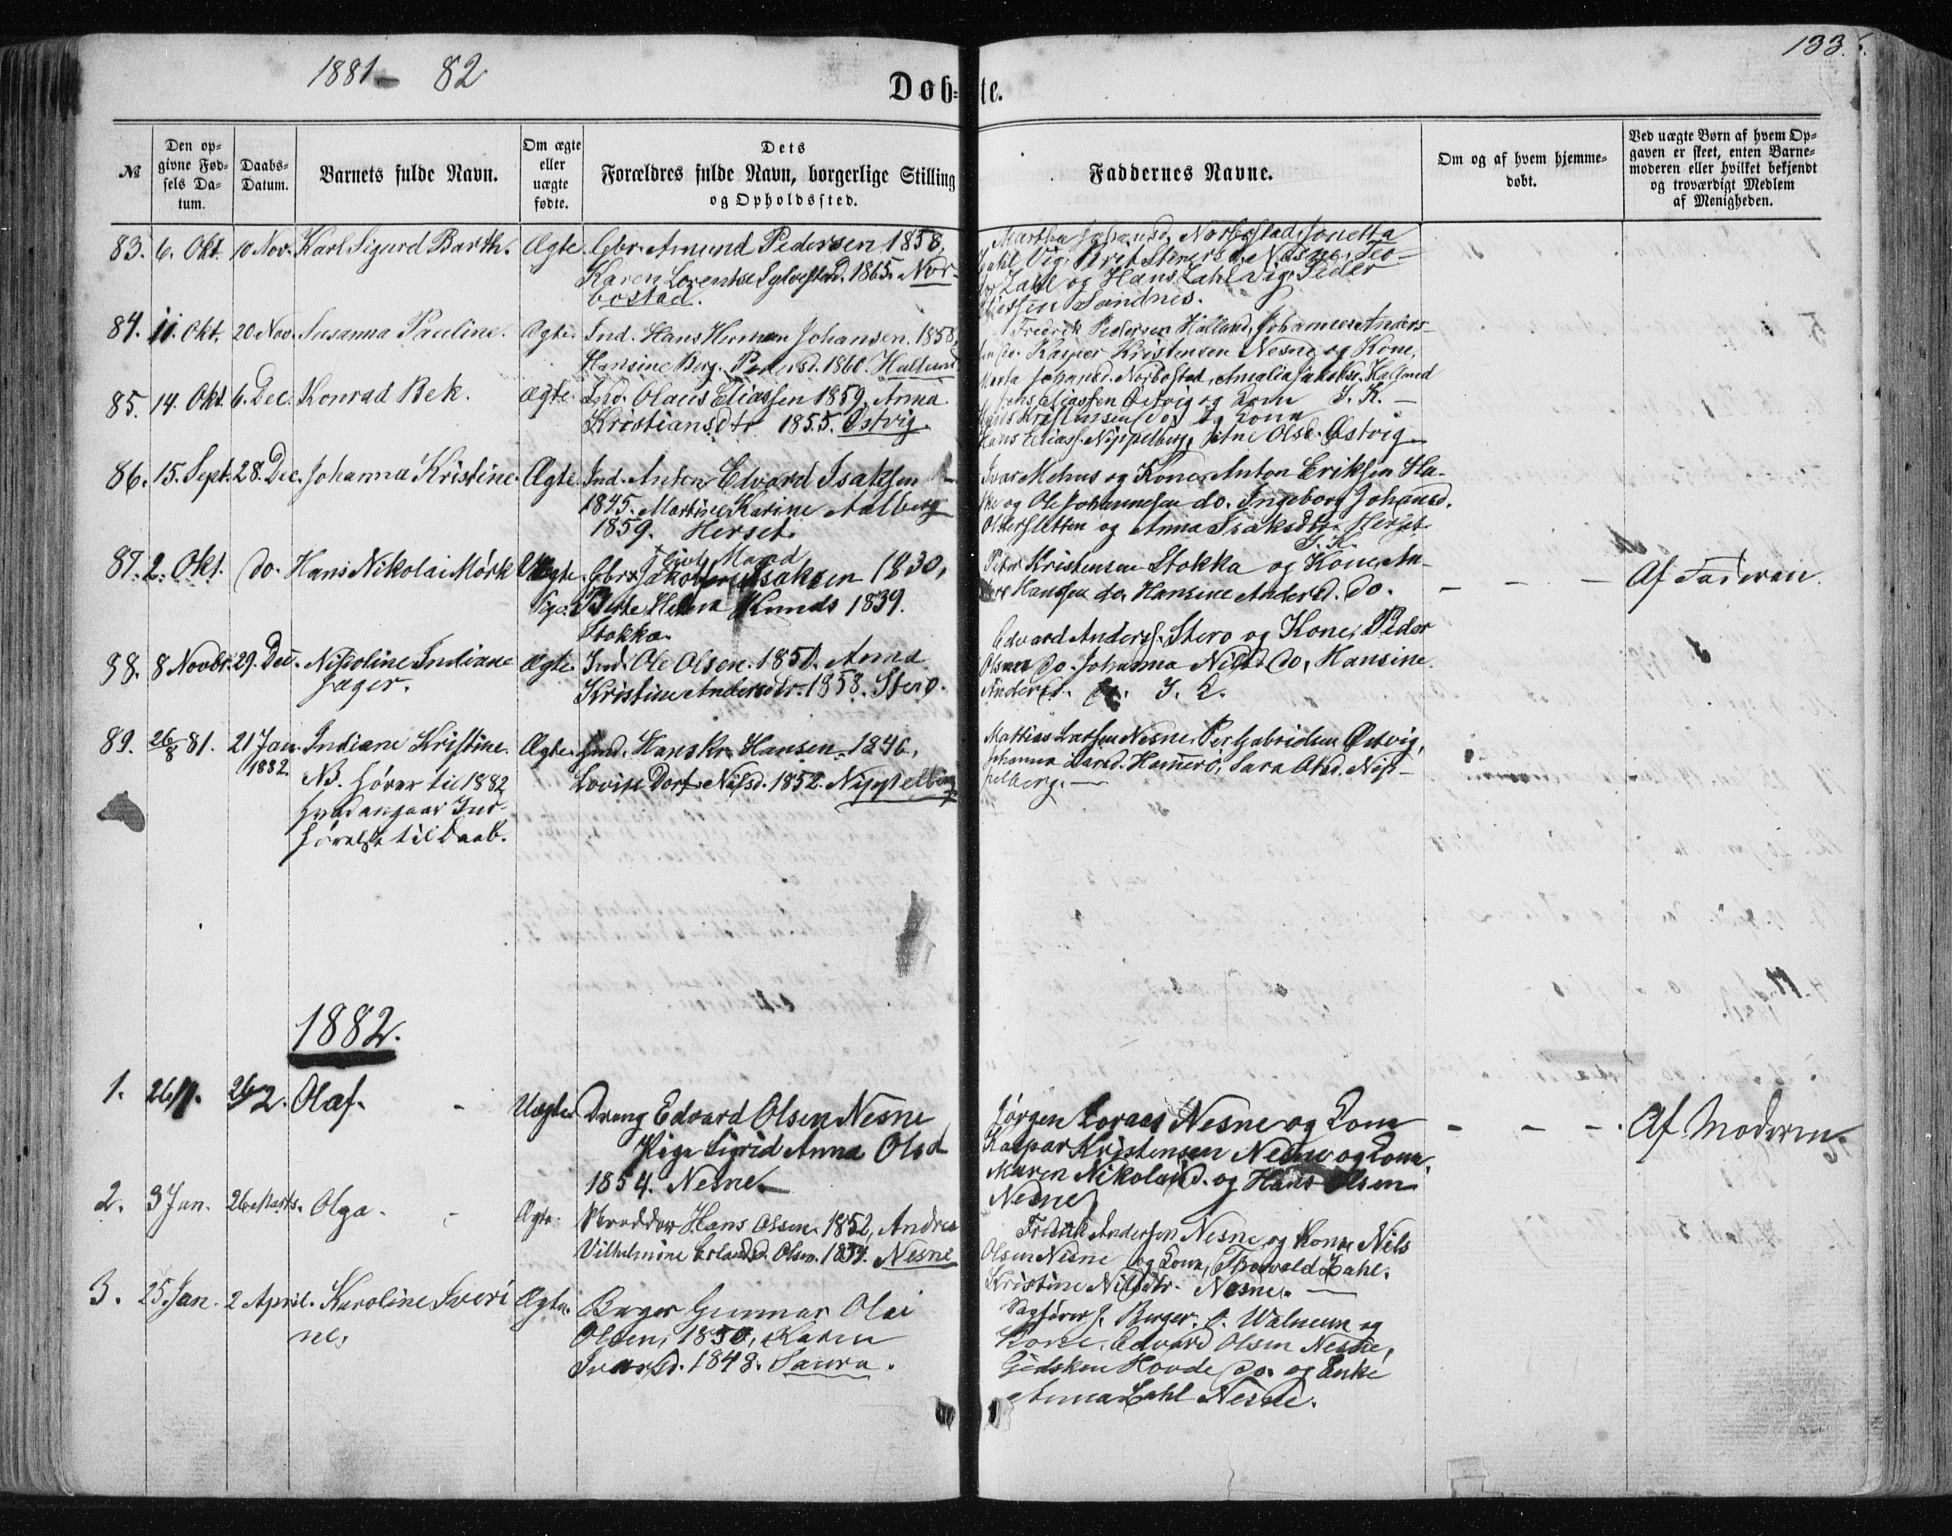 1881 - 82
133.
Døb=te.
No
Den opgivne Fødsels Datum.
Daabs-Datum.
Barnets fulde Navn.
Om ægte eller uægte fødte.
Dets Forældres fulde Navn, borgerlige Stilling og Opholdssted.
Faddernes Navne.
Om og af hvem hjemmedøbt.
Ved uægte Børn af hvem Opgaven er skeet, enten Barnemoderen eller hvilket bekjendt og troværdigt Medlem af Menigheden.
83. 6. Okt. 10 Nov. Karl Sigurd Barth. Ægte. Gbr. Amund Pedersen 1858,
Karen Lorentse Sylvestd. 1865. Nor-
bostad.
Martha Johansd. Norbostad, Jonetta
Zahl Vig, Berit Stinersd. Nesne, Teo-
dor Zahl og Hans Zahl Vig, Peder
Sandnes.
84. 11. Okt. 20 Nov. Susanna Pauline. Ægte. Ind. Hans Herman Johansen. 1858,
Hansine Berg. Pedersd. 1860. Halland
Fredrik Pedersen Halland, Johannes Anders-
sen do. Kasper Kristensen Nesne og Kone,
Marta Johansd. Norbostad, Amalia Jakobs. Halland
85. 14. Okt. 6. Dec. Konrad Bek. Ægte. Olaus Eliassen 1859. Anna
Kristiansdtr 1855. Østvig.
Jens Eliassen Østvig og Kone I. K. -
Kristensen do. og Kona
Hans Eliass. Nippelberg, Olsd. Østvig
86. 15. Sept. 28. Dec. Johanna Kristine. Ægte. Ind. Anton Edvard Isaksen
1845. Martine Karine Aalberg
1859. Herset.
Ivar Mehus og Kone, Anton Eriksen
og Ole Johannesen do. Ingeborg Johansd.
og Anna Isaksdtr. Herset.
87. 2. Okt. do. Hans Nikolai Mørk Uægte. Gbr. gift Mand
Isaksen 1830,
Pige Berte Helena Knuds 1839.
Stokka.
Peter Kristensen Stokka og Kone, An-
Hansen do. Hansine Andersd. do.
- - - Af Faderen.
88. 8 Novbr. 29. Dec. Nikoline Indiane
Jager.
Ægte. Ind. Ole Olsen. 1851. Anna
Kristine Andersdtr. 1858. Stero.
Edvard Anders. Stero og Kone, Peder
Olsen do. Johanna Nilsd. do, Hansine
Andersd. do.
89. 26/8 81. 21 Jan. 1882. Indiane Kristine.
NB. hører til 1882
hvad angaar Ind-
førelse til Daab.
Ægte. Ind. Hans Kr. Hansen. 1846,
Lovise Dort. Nilsd. 1852. Nippelberg
Mattias Larsen Nesne, Per Gabrielsen Østvig,
Johanna Larsd. Hammerö, Sara Olsd. Nip-
pelberg. -
1882.
1. 26/1. 26/2. Olaf. - Uægte Dreng Edvard Olsen Nesne
Pige Sigrid Anna Olsd
1854. Nesne. -
Jørgen Zoraes Nesne og Kone
Kaspar Kristensen Nesne og Kone,
Maren Nikolaid. og Hans Olsen
Nesne
- - -. Af Moderen.
2. 3 Jan. 26 Marts. Olga. - Ægte. Hans Olsen. 1852, Andrea
Vilhelmine Erlandsd. Olsen. 1834. Nesne
Fredrik Andersen Nesne og Kone Nils
Olsen Nesne og Kone, Thorvald Zahl.
Kristine Nilsdtr. Nesne. -
3. 25. Jan. 2 April. Karoline Severi
ne,
Ægte. Bager Gunnar Olai
Olsen, 1850, Karen
Ivarsd. 1848. Saura.
Sagfører J. Berger. Walnum og
Kone. Edvard Olsen Nesne,
Gidsken Hovde do. og Enke
Anna Zahl Nesne.